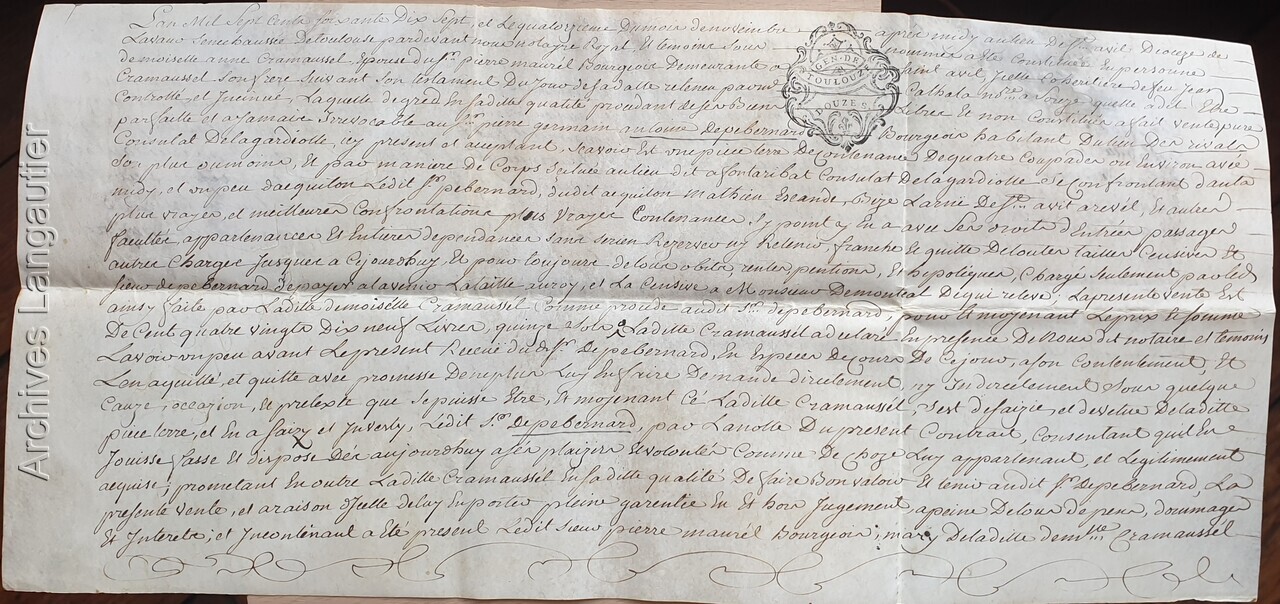 L'an Mil Sept Cents soixante Dix Sept, et Le quatorzieme Dumois denovembre apres midy au lieu De St. avit Dioceze de
Lavaur Senechaussée De toulouse pardevant nous notaire Royal, Et temoins Sous nommés a été Constituée En personne
demoiselle anne Cramaussel, Epouse du Sr. pierre maurél Bourgeois Demeurante a Saint avit Jcelle Coheritiere de feu Jean
Cramaussel Son frere Suivant Son testament Du Jour de sa datte retenu par me a Soreze quelle a dit Etre
Controllé, et Jncinué, Laquelle de gred En sa ditte qualité procedant de Ses Biens Libres Et non Constitués a fait vente pure
parfaite et a Jamais Jrrevocable au Sr. pierre germain antoine Depebernard Bourgeois habitant Du lieu Des rivals
Consulat Delagardiolle, icy present et aceptant, Scavoir Est une piece terre De Contenance De quatre Coupades ou Environ avec
So, plus ou moins, Et par maniere de Corps Scituée au lieu dit a fontaribat Consulat Delagardiolle Se Confrontant d'auta
midy, et un peu daquilon Ledit Sr. pebernard, du dit aquilon Mathieu Escande, De St. avit arevel, Et autres
plus vrayes, et meilleures Confrontations plus Vrayes Contenances, Sy point y En a avec Ses Droits d'Entrées passages
facultes, appartenances Et Entieres dependances Sans Se rien Rezerver ny Retenir, franche Et quitte De toutes tailles Censives Et
autres Charges Jusques a Cejourdhuy, Et pour toujours de tous obits rentes pentions, Et hipoteques, Chargé Seulement par led.
Sieur depebernard de payer a lavenir La taille au roy, et La Censive a Monsieur Demontcal De qui releve; La presente vente Est
ainsy faite par Laditte demoiselle Cramaussel Comme audit Sr. depebernard, pour Et moyenant Leprix Et Somme
De Cent quatre vingts Dix neuf Livres, quinze Sols Laditte Cramaussél a declaré En presence De Nous dit notaire et temoins
Lavoir un peu avant Le present Receüe du dt. Sr. Depebernard, En Especes De Cours De Ce jour, a Son Contentement, Et
Len aquitté, et quitte avec promesse De ne plus Luy En faire Demande directement, ny Jndirectement Sous quelque
Cauze, occazion, Et pretexte que Se puisse Etre, Et moyenant Cé Laditte Cramaussél, S'est desaizie, et devetue De laditte
piece terre, et En a Saizy et Jnvesty, Lédit Sr. Depebernard, par Lanotte Du present Contrait, Consentant quil En
Jouisse fasse Et dispose Dez aujourdhuy a Ses plaizirs Et volontés Comme De Choze Luy appartenant, et Legitimement
aquise; prometant En outre Laditte Cramaussel En Saditte qualité De faire Bon valoir Et tenir audit Sr. Depebernard, La
presente vente, et a raison d'Jcelle de luy En porter pleine garentie En Et hors Jugement, a peine De tous depens, dommages
Et Jnterets; et Jncontinant a été present Lédit Sieur pierre maurél Bourgeois; mary De laditte dem.lle Cramaussél
GEN. DE TOULOUZE
DOUZE S.
Archives Langautier